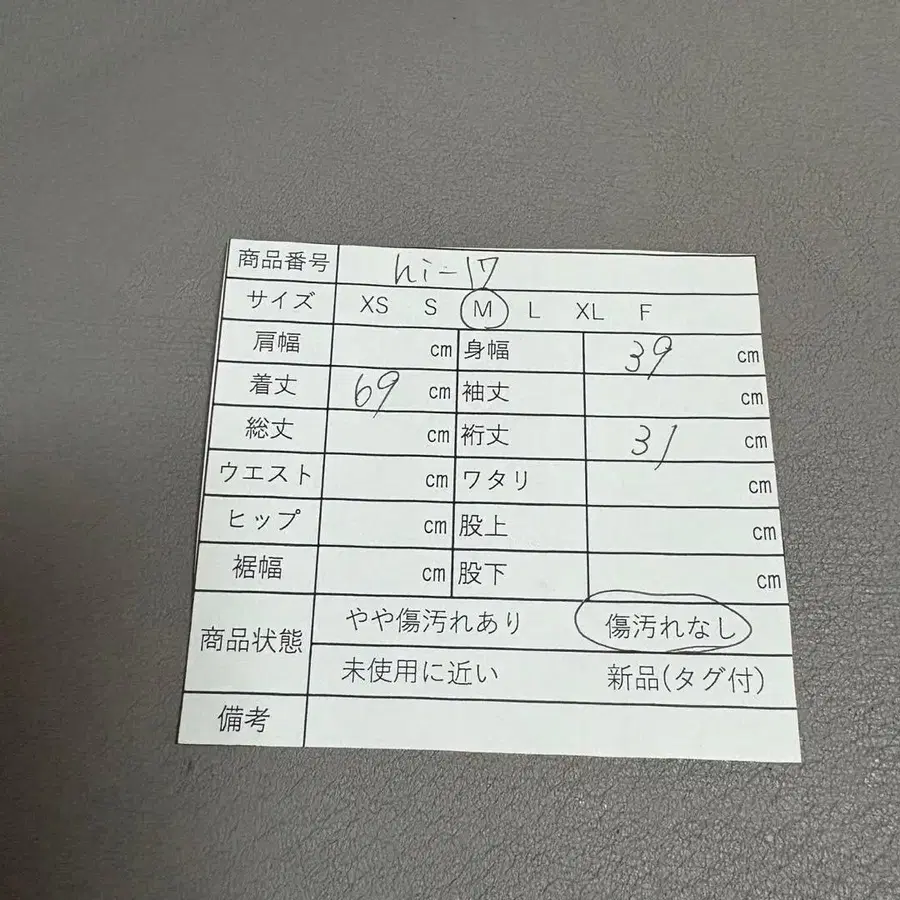 商品番号 hi-17
サイズ XS S M L XL F
肩幅 cm 身幅 39 cm
着丈 69 cm 袖丈 cm
総丈 cm 裄丈 31 cm
ウエスト cm ワタリ cm
ヒップ cm 股上 cm
裾幅 cm 股下 cm
商品状態 やや傷汚れあり 傷汚れなし
未使用に近い 新品(タグ付)
備考